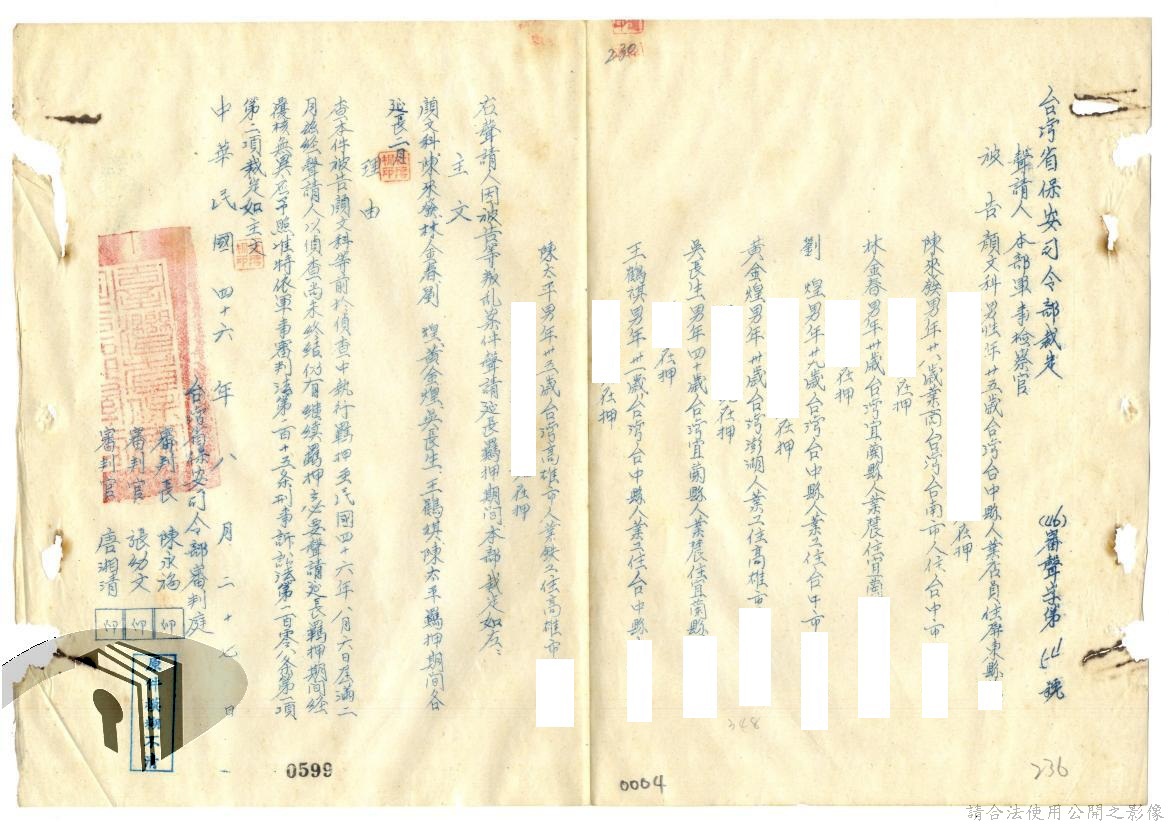 台灣省保安司令部裁定
(46)審聲字第54號
聲請人 本部軍事檢察官
被告 顏文科 男性年卅五歲台灣台中縣人業店員住屏東縣
在押
陳來發 男年廿八歲業商台灣台南市人住台中市
在押
林金春 男年卅歲台灣宜蘭縣人業農住宜蘭
在押
劉 煌 男年廿九歲台灣台中縣人業工住台中市
在押
黃金煌 男年卅歲台灣澎湖人業工住高雄市
在押
吳長生 男年四十歲台灣宜蘭縣人業農住宜蘭縣
在押
王鶴祺 男年卅一歲台灣台中縣人業工住台中縣
在押
陳太平 男年卅三歲台灣高雄市人業鉄工住高雄市
在押
右聲請人因被告等叛乱案件聲請延長羈押期間本部裁定如左:
主文
顏文科陳來發林金春劉 煌黃金煌吳長生王鶴祺陳太平羈押期間各
延長二月
理由
查本件被告顏文科等前於偵查中執行羈押至民國四十六年八月六日屆滿二
月茲經聲請人以偵查尚未終結仍有継续羈押必要聲請延長羈押期間經
覆核無異应予照准特依軍事審判法第一百十五条刑事訴訟法第一百零八条第一項
第二項裁定如主文
中華民國四十六年八月二十七日
台灣省保安司令部審判庭
審判長 陳永福
審判官 張幼文
審判官 唐湘清
仰 仰 仰
原件模糊不清
230
236
348
0599
0004
請合法使用公開之影像